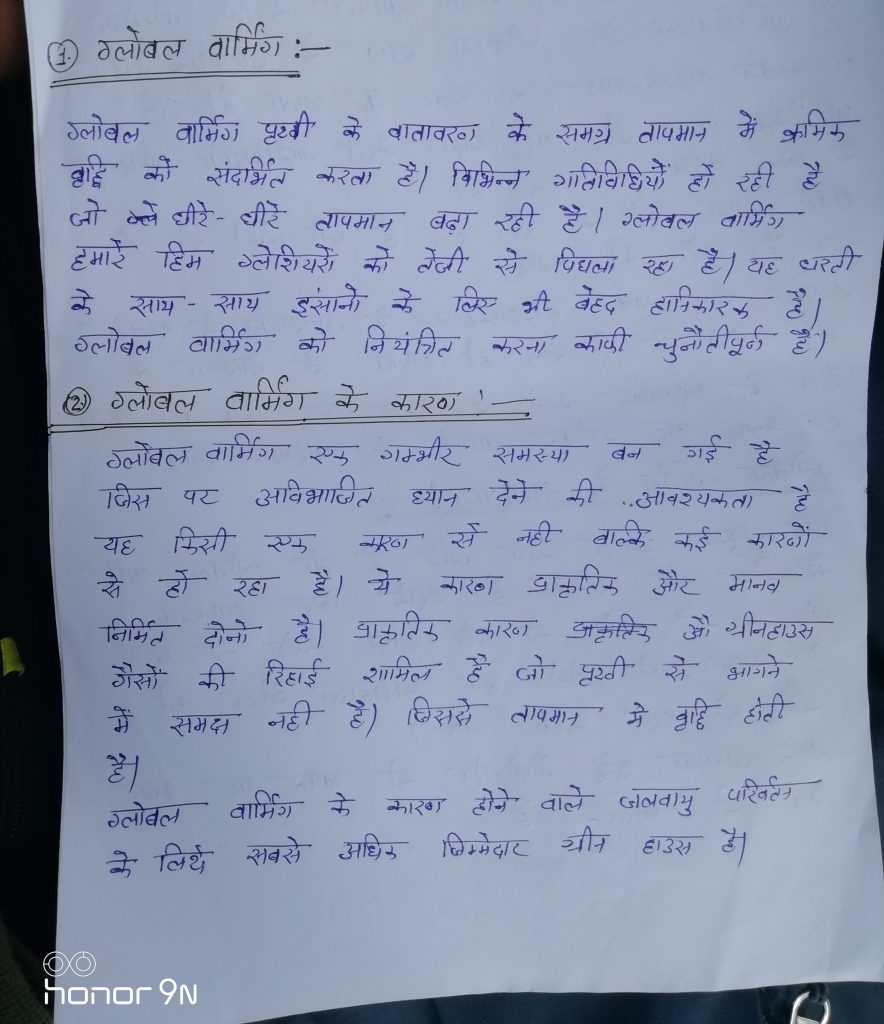 1. ग्लोबल वार्मिंग :—
ग्लोबल वार्मिंग पृथ्वी के वातावरण के समग्र तापमान में क्रमिक
वृद्धि को संदर्भित करता है। विभिन्न गतिविधियों हो रही है
जो धीरे-धीरे तापमान बढ़ा रही है। ग्लोबल वार्मिंग
हमारे हिम ग्लेशियरों को तेजी से पिघला रहा है। यह धरती
के साथ-साथ इंसानो के लिए भी बेहद हानिकारक है।
ग्लोबल वार्मिंग को नियंत्रित करना काफी चुनौतीपूर्ण है।
(2) ग्लोबल वार्मिंग के कारण :—
ग्लोबल वार्मिंग एक गम्भीर समस्या बन गई है
जिस पर अविभाजित ध्यान देने की आवश्यकता है
यह किसी एक कारण से नही बल्कि कई कारणों
से हो रहा है। ये कारण प्राकृतिक और मानव
निर्मित दोनो है। प्राकृतिक कारण प्राकृतिक औ ग्रीनहाउस
गैसों की रिहाई शामिल है जो पृथ्वी से भागने
में समक्ष नही है। जिससे तापमान मे वृद्धि होती
है।
ग्लोबल वार्मिंग के कारण होने वाले जलवायु परिवर्तन
के लिये सबसे अधिक जिम्मेदार ग्रीन हाउस है।
honor 9N